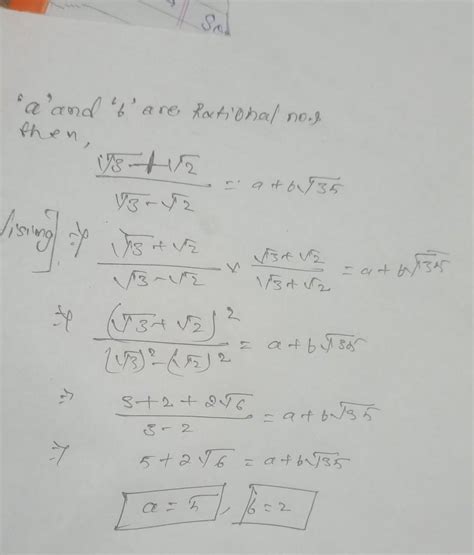 'a' and 'b' are Rational no.s
then,
(√3 + √2)/(√3 - √2) = a + b√35
lising] ⇒ (√3 + √2)/(√3 - √2) × (√3 + √2)/(√3 + √2) = a + b√35
⇒ (√3 + √2)²/((√3)² - (√2)²) = a + b√35
⇒ (3 + 2 + 2√6)/(3 - 2) = a + b√35
⇒ 5 + 2√6 = a + b√35
a = 5, b = 2